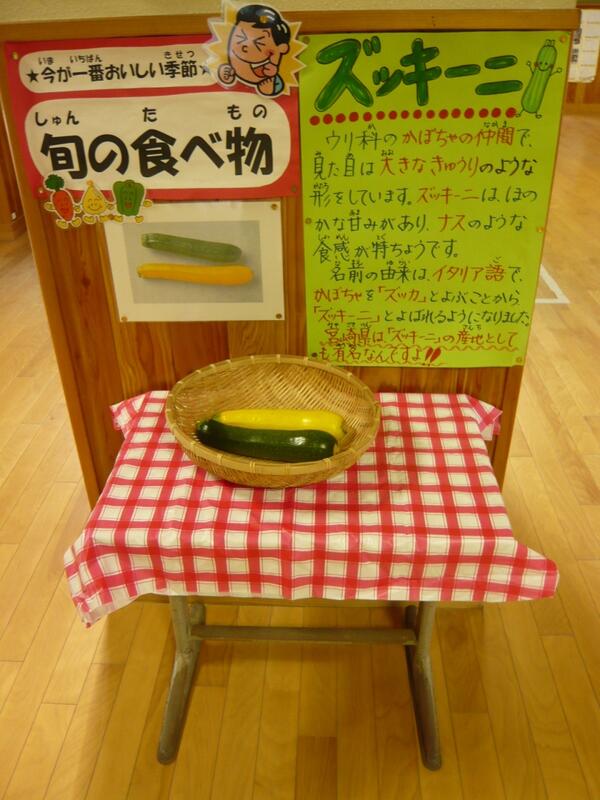 ★今が一番おいしい季節★
いま いちばん きせつ
しゅん た もの
旬の食べ物
ズッキーニ
ウリ科のかぼちゃの仲間で、
見た目は大きなきゅうりのような
形をしています。ズッキーニは、ほの
かな甘みがあり、ナスのような
食感が特ちょうです。
名前の由来は、イタリア語で、
かぼちゃを「ズッカ」とよぶことから
「ズッキーニ」とよばれるようになりました。
宮崎県は、「ズッキーニ」の産地として
も有名なんですよ!!